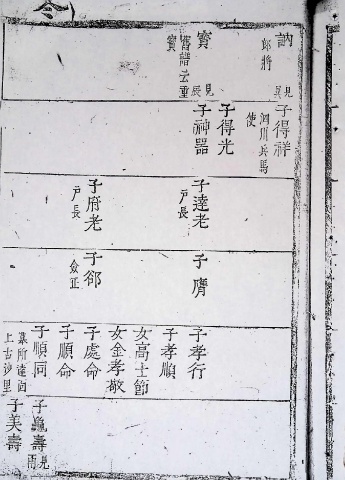 訥
郎將
見
子得祥
洞州兵馬使
寶
舊譜云重寶
見
辰
子得光
子神器
子達老
戶長
子府老
戶長
子膺
子郤
僉正
子孝行
子孝順
女高士節
女金孝敬
子處命
子順命
子順同
墓所達
上古沙里
子龜壽
見
子美壽